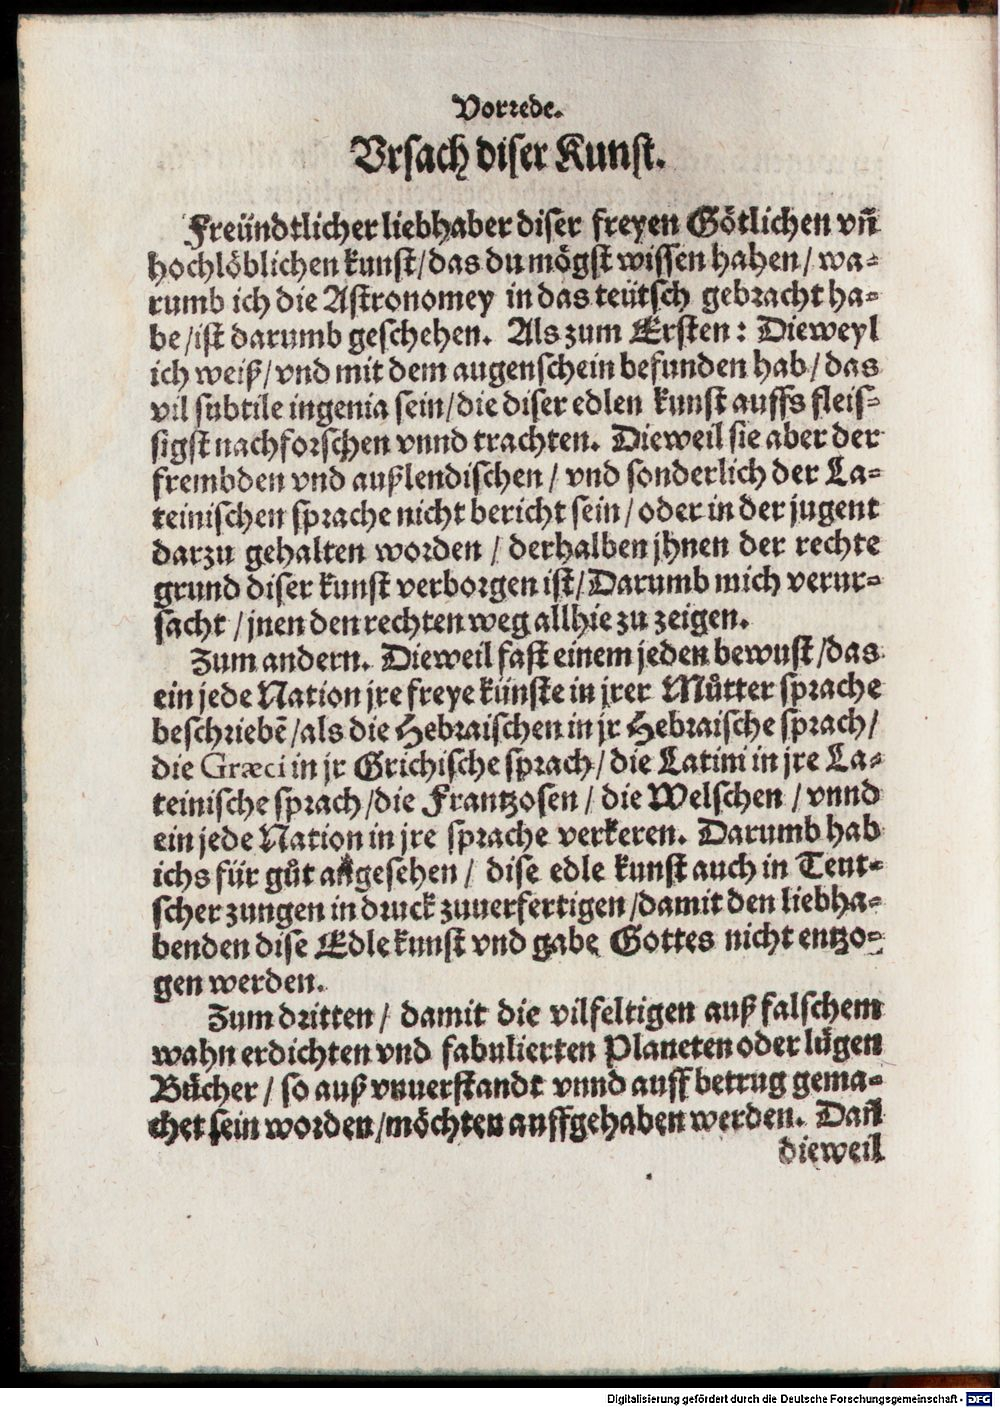 Vorrede.
Vrsach diser Kunst.
Freündtlicher liebhaber diser freyen Götlichen vñ
hochlöblichen kunst/das du mögst wissen hahen/wa-
rumb ich die Astronomey in das teütsch gebracht ha-
be/ist darumb geschehen. Als zum Ersten: Dieweyl
ich weiß/vnd mit dem augenschein befunden hab/das
vil subtile ingenia sein/die diser edlen kunst auffs fleis-
sigst nachforschen vnnd trachten. Dieweil sie aber der
frembden vnd außlendischen/vnd sonderlich der La-
teinischen sprache nicht bericht sein/oder in der jugent
darzu gehalten worden/derhalben jhnen der rechte
grund diser kunst verborgen ist/Darumb mich verur-
sacht/jnen den rechten weg allhie zu zeigen.
Zum andern. Dieweil fast einem jeden bewust/das
ein jede Nation jre freye künste in jrer Můtter sprache
beschriebẽ/als die Hebraischen in jr Hebraische sprach/
die Græci in jr Grichische sprach/die Latini in jre La-
teinische sprach/die Frantzosen/die Welschen/vnnd
ein jede Nation in jre sprache verkeren. Darumb hab
ichs für gůt angesehen/dise edle kunst auch in Teut-
scher zungen in druck zuuerfertigen/damit den liebha-
benden dise Edle kunst vnd gabe Gottes nicht entzo-
gen werden.
Zum dritten/damit die vilfeltigen auß falschem
wahn erdichten vnd fabulierten Planeten oder lügen
Bücher/so auß vnuerstandt vnnd auff betrug gema-
chet sein worden/möchten auffgehaben werden. Dañ
dieweil
Digitalisierung gefördert durch die Deutsche Forschungsgemeinschaft - DFG